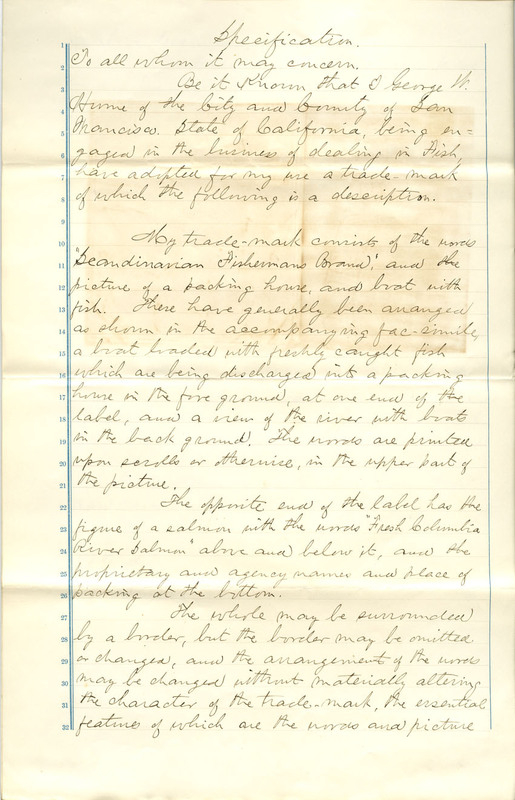 Specification.
1
To all whom it may concern.
2
Be it Known, that I George W.
3
Hume of the City and County of San
4
Francisco. State of California, being en-
5
gaged in the business of dealing in Fish,
6
have adopted for my use a trade-mark
7
of which the following is a description.
8
9
My trade-mark consists of the words
10
"Scandinavian Fishermans Brand", and the
11
picture of a packing house, and boat with
12
fish. These have generally been arranged
13
as shown in the accompanying fac-simile,
14
a boat loaded with freshly caught fish
15
which are being discharged into a packing
16
house in the fore ground, at one end of the
17
label, and a view of the river with boats
18
in the back ground. The words are printed
19
upon scrolls or otherwise, in the upper part of
20
the picture.
21
The opposite end of the label has the
22
figure of a salmon with the words "Fresh Columbia
23
River Salmon" above and below it, and the
24
proprietary and agency names and place of
25
packing at the bottom.
26
The whole may be surrounded
27
by a border, but the border may be omitted
28
or changed, and the arrangement of the words
29
may be changed without materially altering
30
the character of the trade-mark, the essential
31
features of which are the words and picture
32